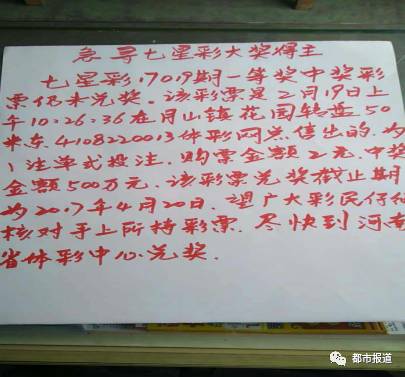 急寻七星彩大奖得主
七星彩17019期一等奖中奖彩
票仍未兑奖。该彩票是二月19日上
午10:26:36在月山镇花园转盘50
米东4108220013体彩网点售出的.为
1注单式投注.购票金额2元.中奖
金额500万元.该彩票兑奖截止期
为2017年4月20日.望广大彩民仔细
核对手上所持彩票.尽快到河南
省体彩中心兑奖.
都市报道